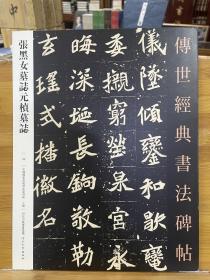 傳世經典書法碑帖
儀墜傾鑾和
委櫬窮塋泉宮永
晦深埏長鐍敬勒
玄瑤式播徽名
張黑女墓誌元楨墓誌